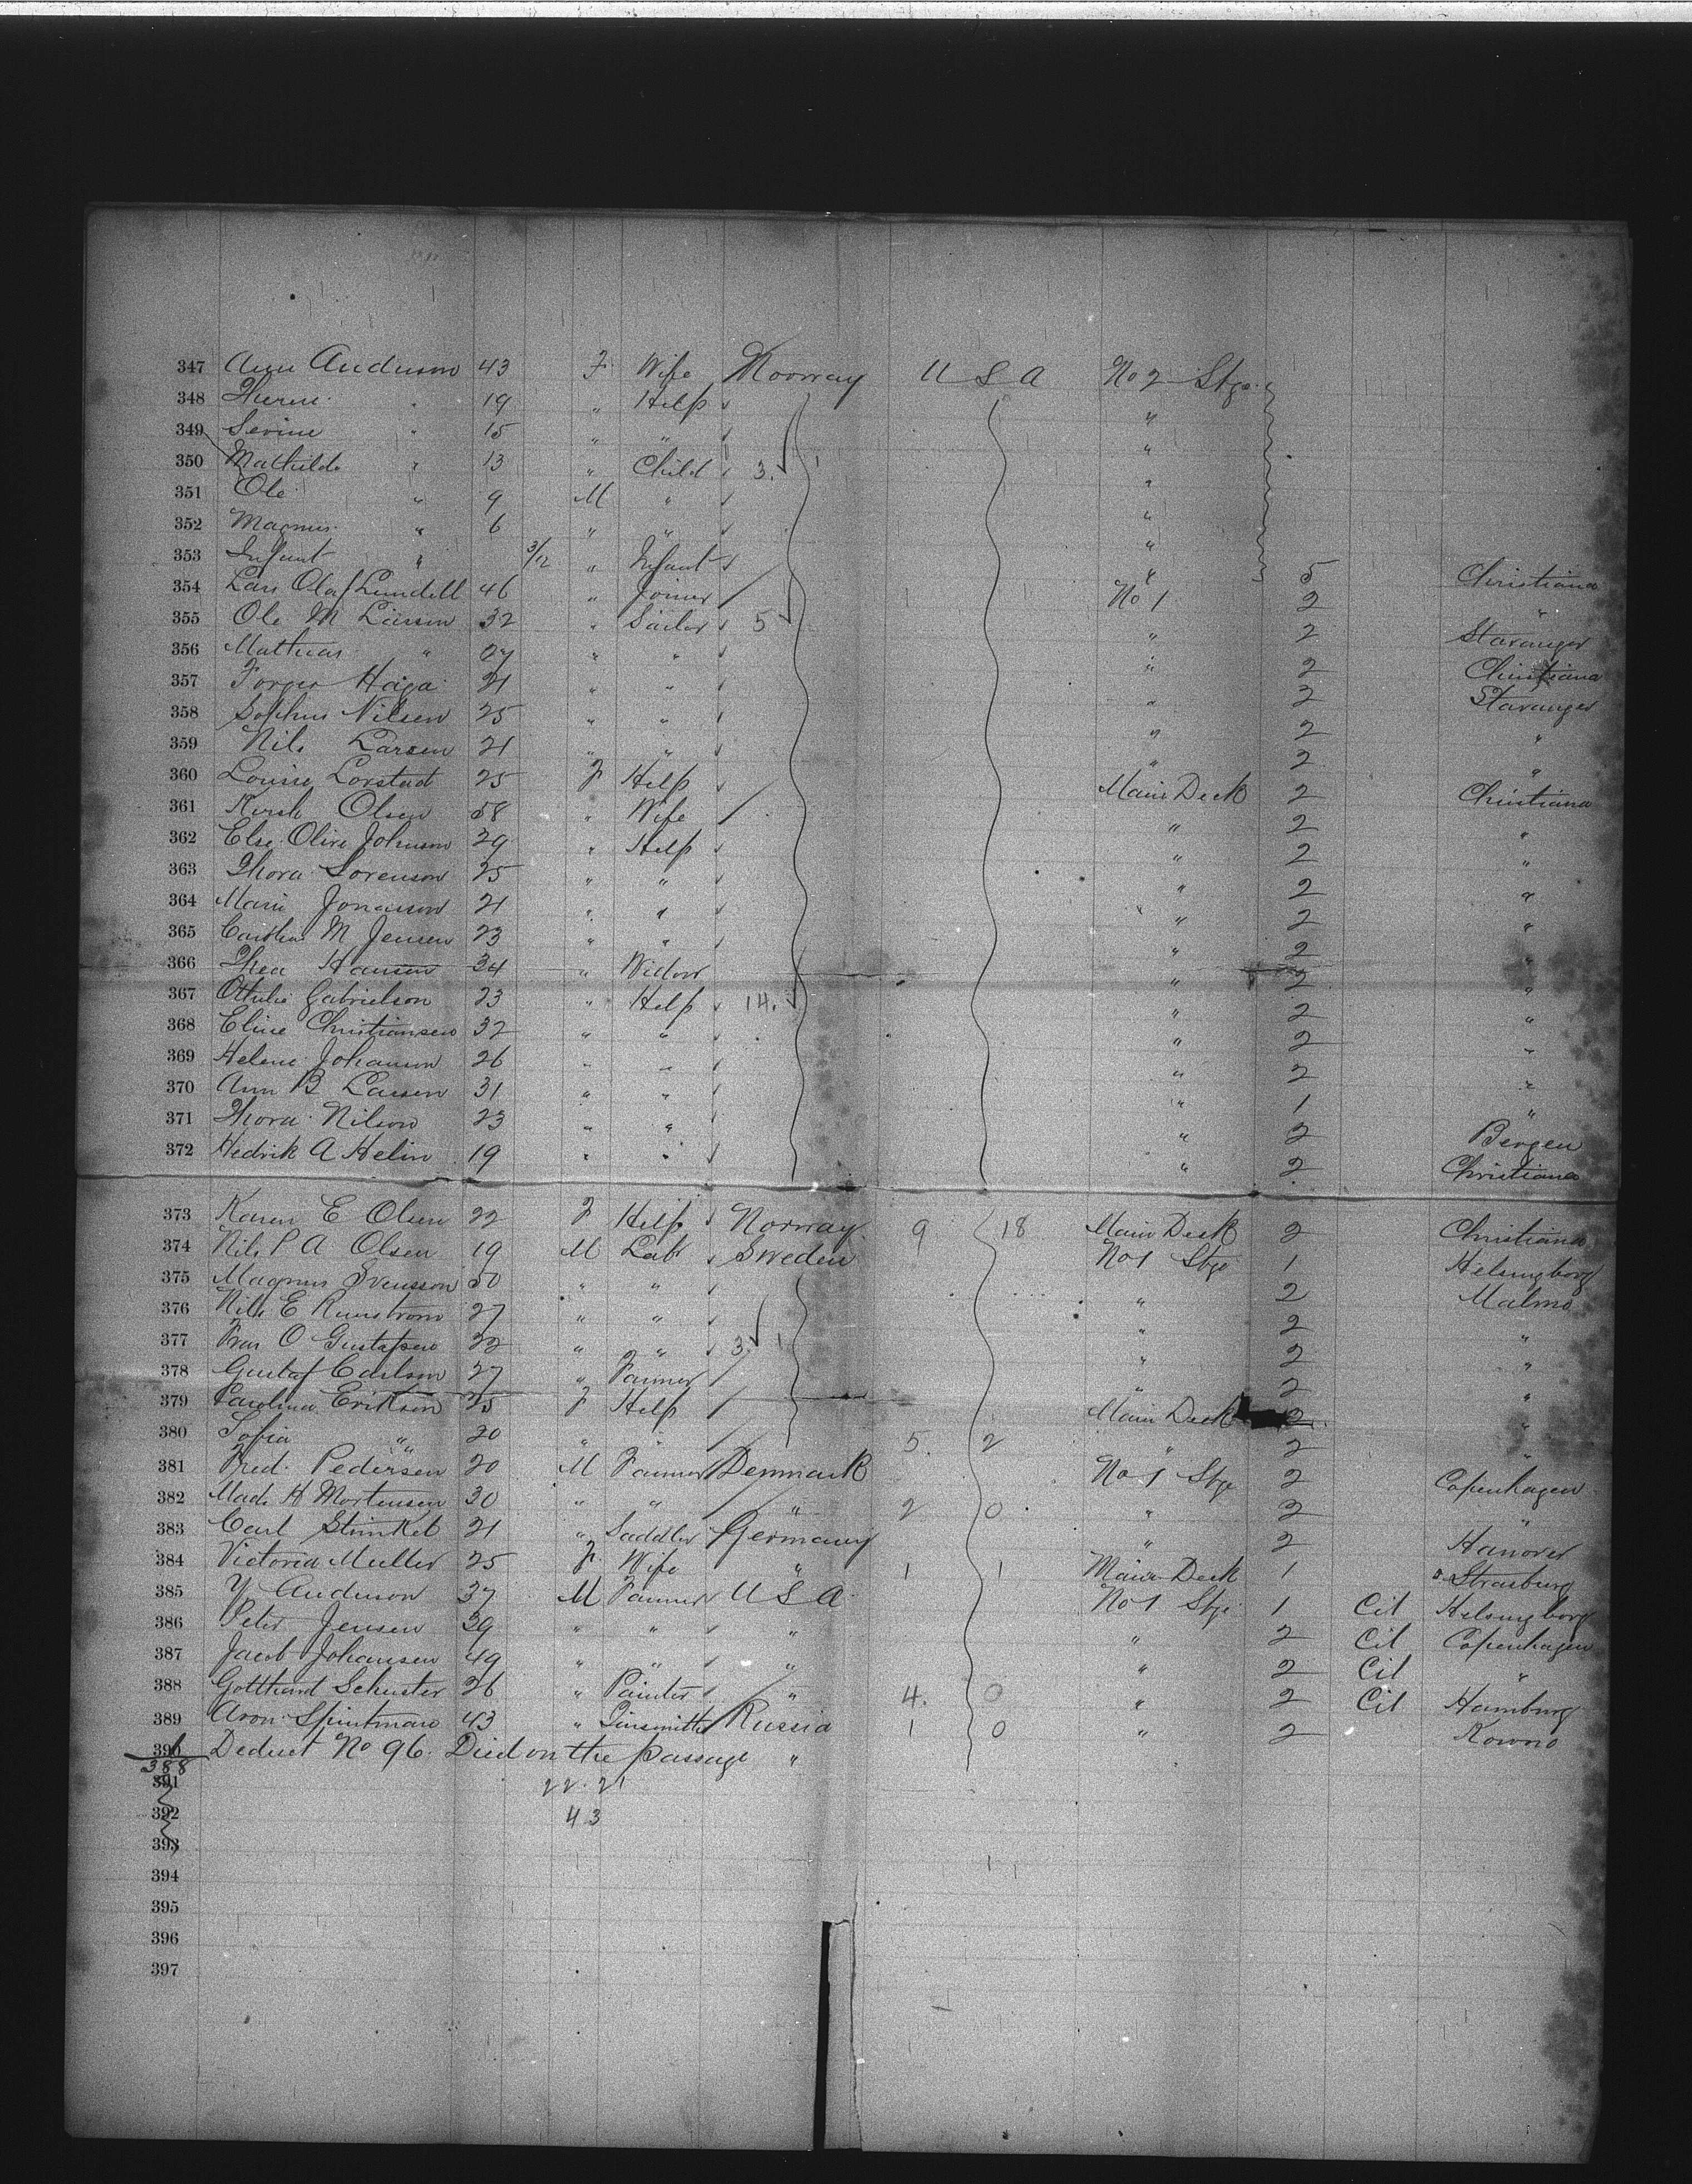 347 Ann Anderson 43 F Wife Norway U S A No 2 Stge
348 " 19 " Help "
349 Sevine " 15 " " "
350 Mathilde " 13 " Child 3. "
351 Ole " 9 M " "
352 Magnus " 6 " " "
353 Infant " 3/12 " Infant " 5 Christiana
354 Lars Olaf Lundell 46 " Joiner No 1 2 "
355 Ole M Larsen 32 " Sailor 5 " 2 Stavanger
356 Mathias " 27 " " " 2 Christiana
357 Haga 21 " " " 2 Stavanger
358 Sophus Nilsen 25 " " " 2 "
359 Nils Larsen 21 " " " 2 "
360 Louise Lorstad 25 F Help Main Deck 2 Christiana
361 Olsen 58 " Wife " 2 "
362 Else Olive Johnson 29 " Help " 2 "
363 Thora Sorenson 25 " " " 2 "
364 Marie 21 " " " 2 "
365 M Jensen 23 " " " 2 "
366 Thea Hansen 34 " Widow " 2 "
367 Gabrielson 23 " Help 14. " 2 "
368 Eline Christiansen 32 " " " 2 "
369 Helene Johanson 26 " " " 2 "
370 Ann B Larsen 31 " " " 1 "
371 Thora Nilson 23 " " " 2 Bergen
372 Hedrik A Helin 19 " " " 2 Christiana
373 Karen E Olsen 22 F Help Norway 9 18 Main Deck 2 Christiana
374 Nils P A Olsen 19 M Lab Sweden No 1 Stge 1 Helsingborg
375 Magnus Svensson 50 " " " 2 Malmo
376 Nils E 27 " " " 2 "
377 O Gustafson 22 " " 3. " 2 "
378 Gustaf Carlson 27 " Farmer " 2 "
379 Carolina Erikson 25 F Help Main Deck 2 "
380 Sofia " 20 " " 5. 2 " 2 "
381 Fred. Pedersen 20 M Farmer Denmark No 1 Stge 2 Copenhagen
382 Mads H Mortensen 30 " " " 2 0 " 2 "
383 Carl 21 " Saddler Germany " 2 Hanover
384 Victoria Muller 25 F Wife " 1 1 Main Deck 1 Strasburg
385 Y Anderson 37 M Farmer U S A No 1 Stge 1 Cit Helsingborg
386 Peter Jensen 39 " " " " 2 Cit Copenhagen
387 Jacob Johansen 49 " " " " 2 Cit "
388 Gotthard Schuster 26 " Painter " 4. 0 " 2 Cit Hamburg
389 Aron Spintman 43 " Tinsmith Russia 1 0 " 2 Kowno
390 1 Deduct No 96. Died on the passage "
388
391 22. 21
392 43
393
394
395
396
397